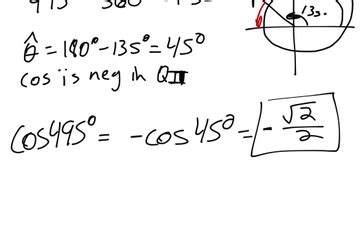 135.
θ̂ = 180° - 135° = 45°
cos is neg in QII
cos495° = -cos45° = -√2/2